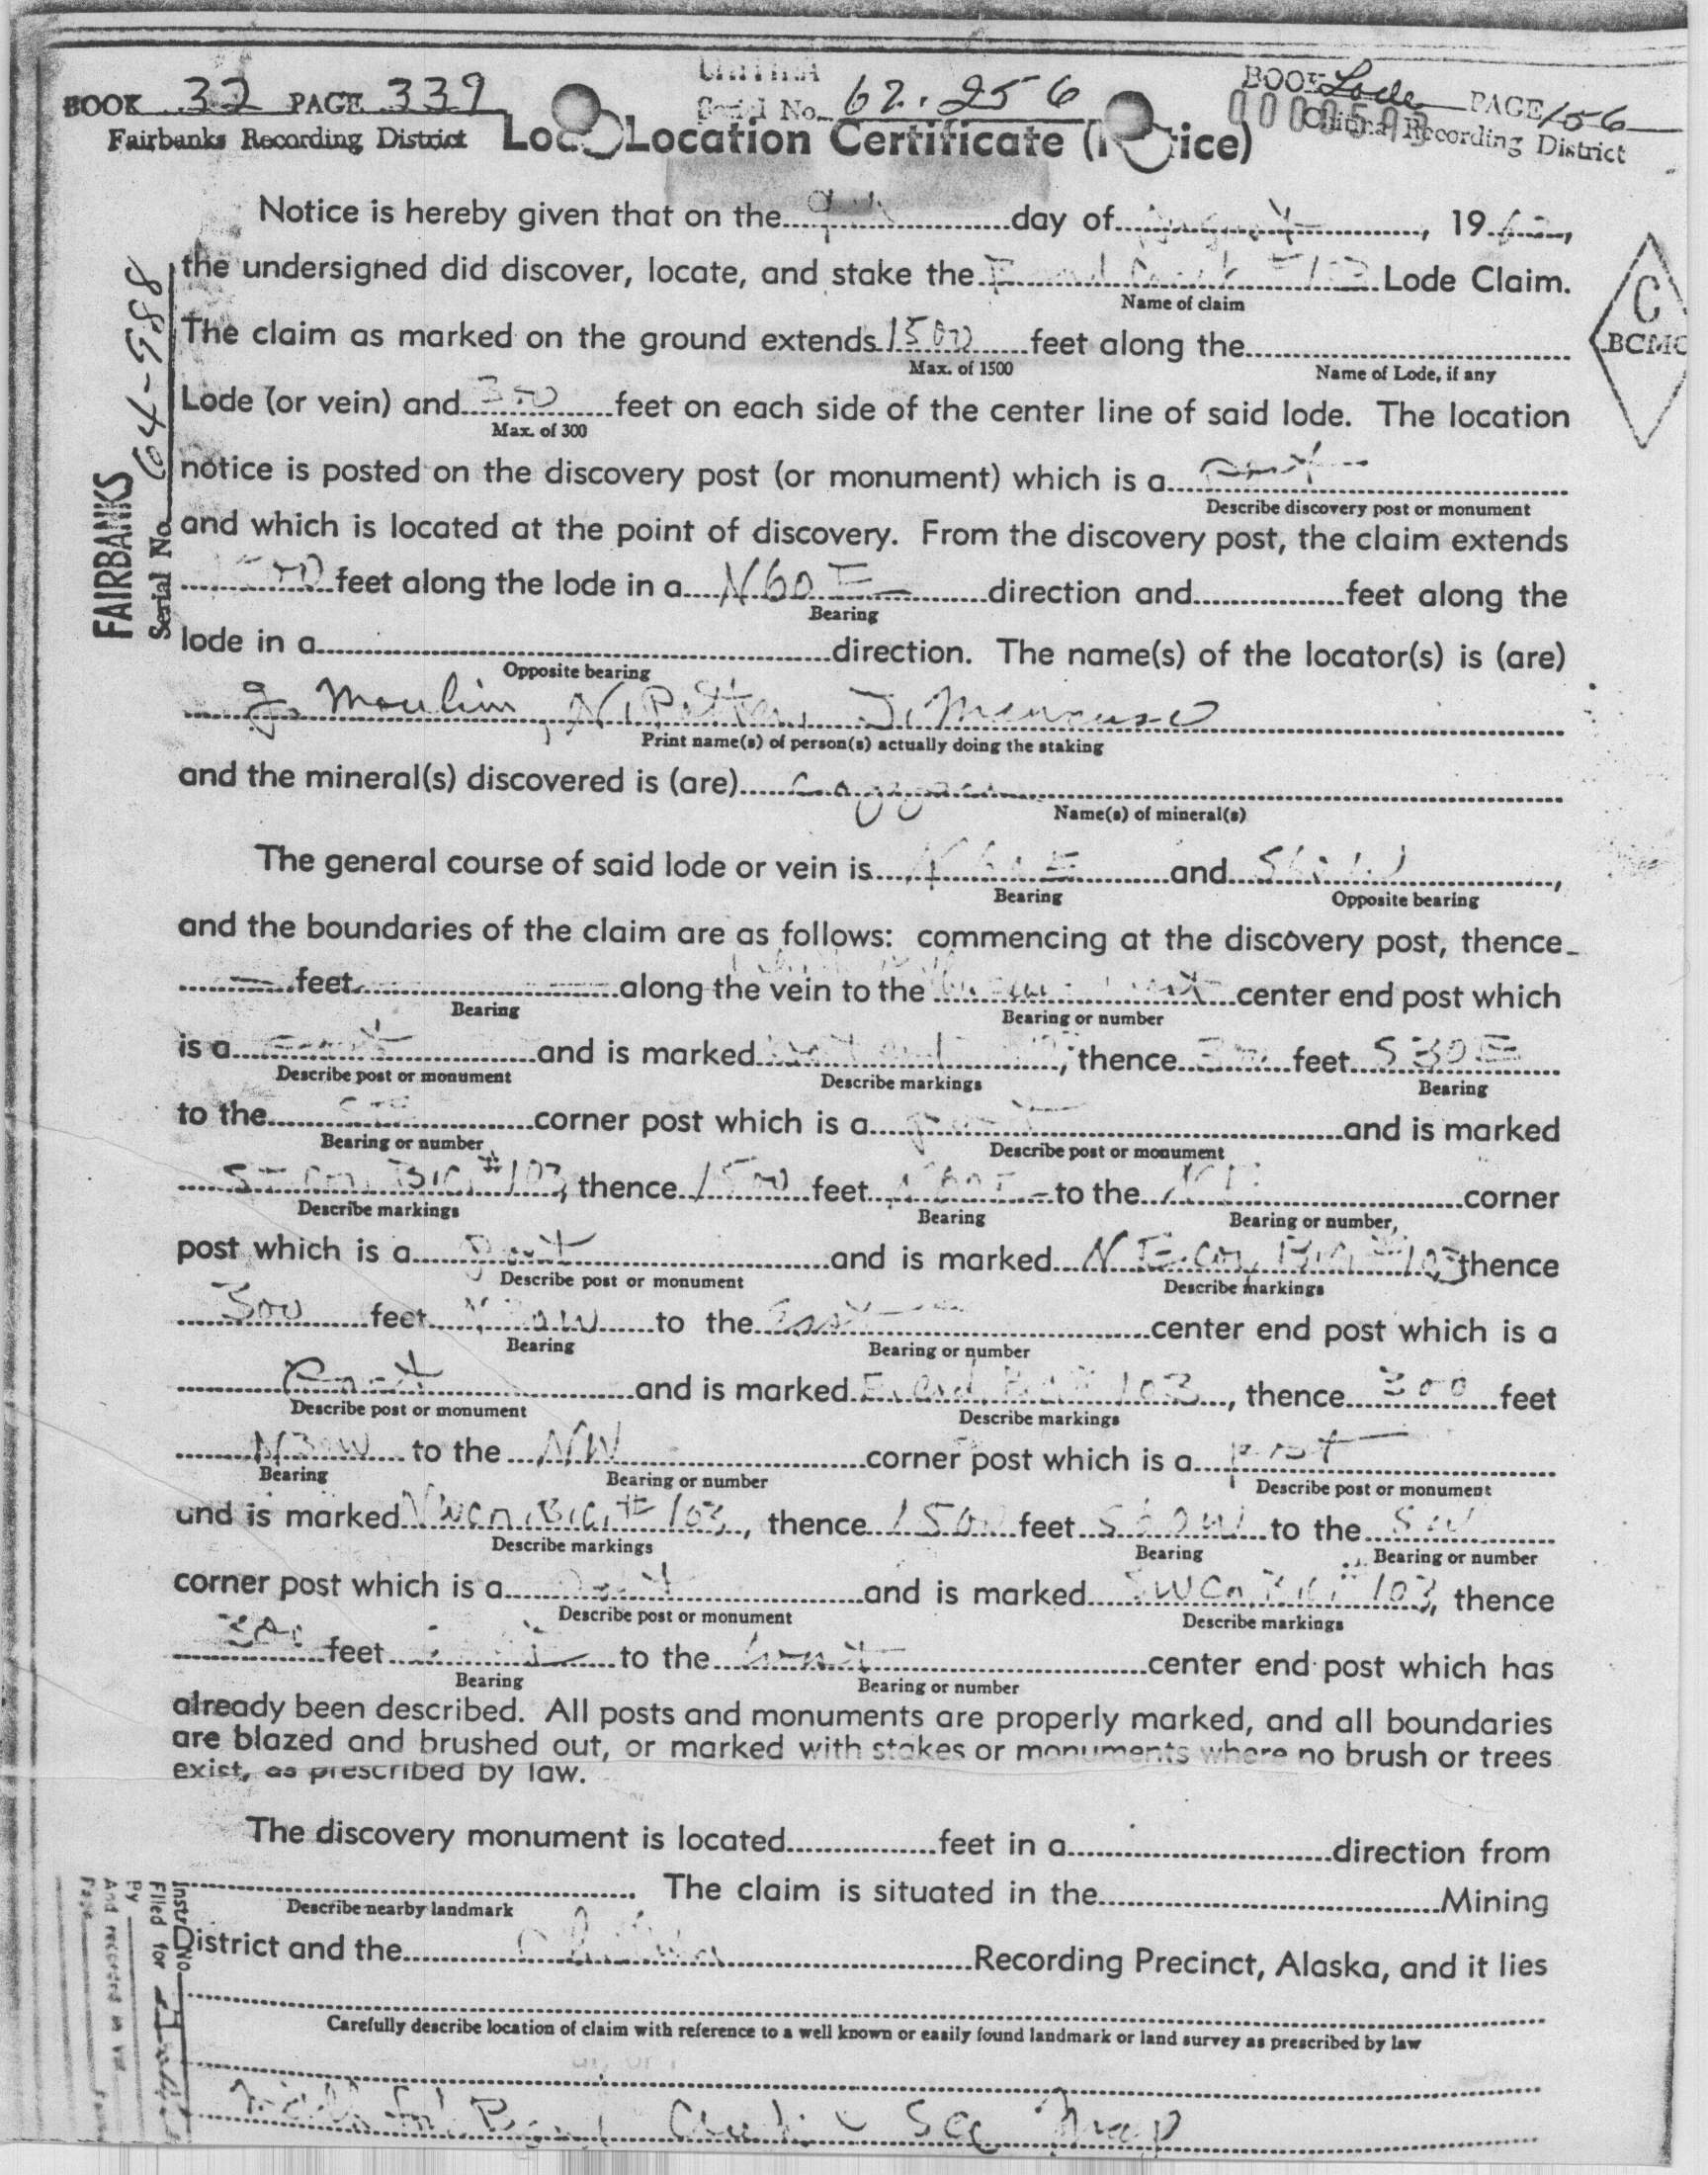 BOOK 32 PAGE 339
Fairbanks Recording District
CHITINA
Serial No. 62-256
BOOK Lode PAGE 156
Chitina Recording District
Location Certificate
Notice is hereby given that on the day of August, 1962,
the undersigned did discover, locate, and stake the #103 Lode Claim.
Name of claim
The claim as marked on the ground extends 1500 feet along the
Max. of 1500 Name of Lode, if any
Lode (or vein) and 300 feet on each side of the center line of said lode. The location
Max. of 300
notice is posted on the discovery post (or monument) which is a post
Describe discovery post or monument
and which is located at the point of discovery. From the discovery post, the claim extends
feet along the lode in a N60E direction and feet along the
Bearing
lode in a direction. The name(s) of the locator(s) is (are)
Opposite bearing
J. Moulin, N. Patten, J. Mancuso
Print name(s) of person(s) actually doing the staking
and the mineral(s) discovered is (are) Copper
Name(s) of mineral(s)
The general course of said lode or vein is N60E and S60W,
Bearing Opposite bearing
and the boundaries of the claim are as follows: commencing at the discovery post, thence
feet along the vein to the center end post which
Bearing Bearing or number
is a post and is marked, thence 300 feet S30E
Describe post or monument Describe markings Bearing
to the corner post which is a post and is marked
Bearing or number Describe post or monument
SE Cor. B.C. #103, thence 1500 feet N60E to the NE corner
Describe markings Bearing Bearing or number
post which is a post and is marked N.E. Cor. B.C. #103, thence
Describe post or monument Describe markings
300 feet N30W to the East center end post which is a
Bearing Bearing or number
Post and is marked E. end B.C. #103, thence 300 feet
Describe post or monument Describe markings
N30W to the NW corner post which is a post
Bearing Bearing or number Describe post or monument
and is marked NW Cor. B.C. #103, thence 1500 feet S60W to the SW
Describe markings Bearing Bearing or number
corner post which is a post and is marked SW Cor. B.C. #103, thence
Describe post or monument Describe markings
300 feet to the West center end post which has
Bearing Bearing or number
already been described. All posts and monuments are properly marked, and all boundaries
are blazed and brushed out, or marked with stakes or monuments where no brush or trees
exist, as prescribed by law.
The discovery monument is located feet in a direction from
The claim is situated in the Mining
Describe nearby landmark
District and the Chitina Recording Precinct, Alaska, and it lies
Carefully describe location of claim with reference to a well known or easily found landmark or land survey as prescribed by law
See Map
FAIRBANKS
Serial No. 64-988
C
BCMC
Instr. No.
Filed for
By
And recorded in Vol
Page